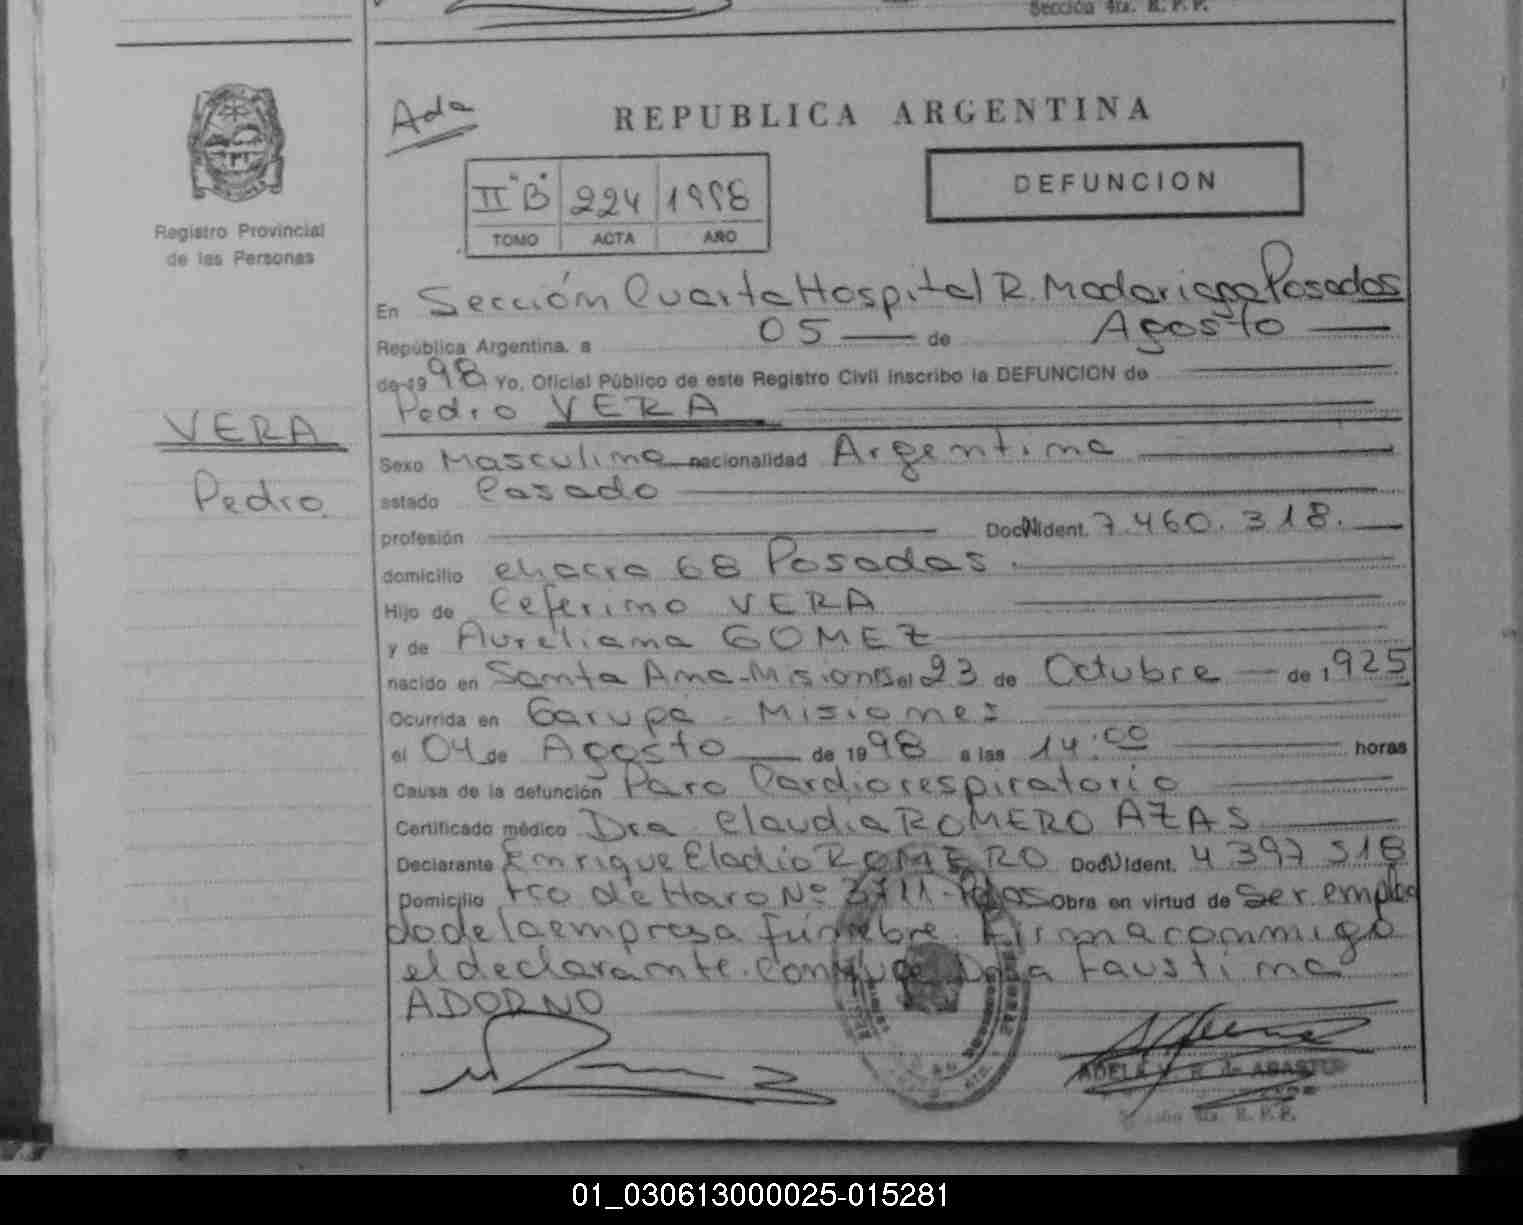 Sección 4ta. R. P. P.
Ada
REPUBLICA ARGENTINA
II "B" 224 1998
TOMO ACTA AÑO
DEFUNCION
Registro Provincial
de las Personas
En Sección Cuarta Hospital R. Madariaga Posadas
República Argentina, a 05 de Agosto
de 1998 Yo, Oficial Público de este Registro Civil inscribo la DEFUNCION de
Pedro VERA
VERA
Pedro
Sexo Masculino nacionalidad Argentina
estado Casado
profesión Doc. Ident. 7.460.318.
domicilio chacra 68 Posadas
Hijo de Ceferino VERA
y de Aureliana GOMEZ
nacido en Santa Ana-Misiones el 23 de Octubre de 1925
Ocurrida en Garupá - Misiones
el 04 de Agosto de 1998 a las 14:00 horas
Causa de la defunción Paro Cardiorespiratorio
Certificado médico Dra. Claudia ROMERO AZAS
Declarante Enrique Eladio ROMERO Doc. Ident. 4397318
Domicilio Fco de Haro Nº 3711-Pdas Obra en virtud de Ser emplea
do de la empresa fúnebre. Firma conmigo
el declarante. Conyuge Doña Faustina
ADORNO
ADELA de
4ta. R. P. P.
01_030613000025-015281